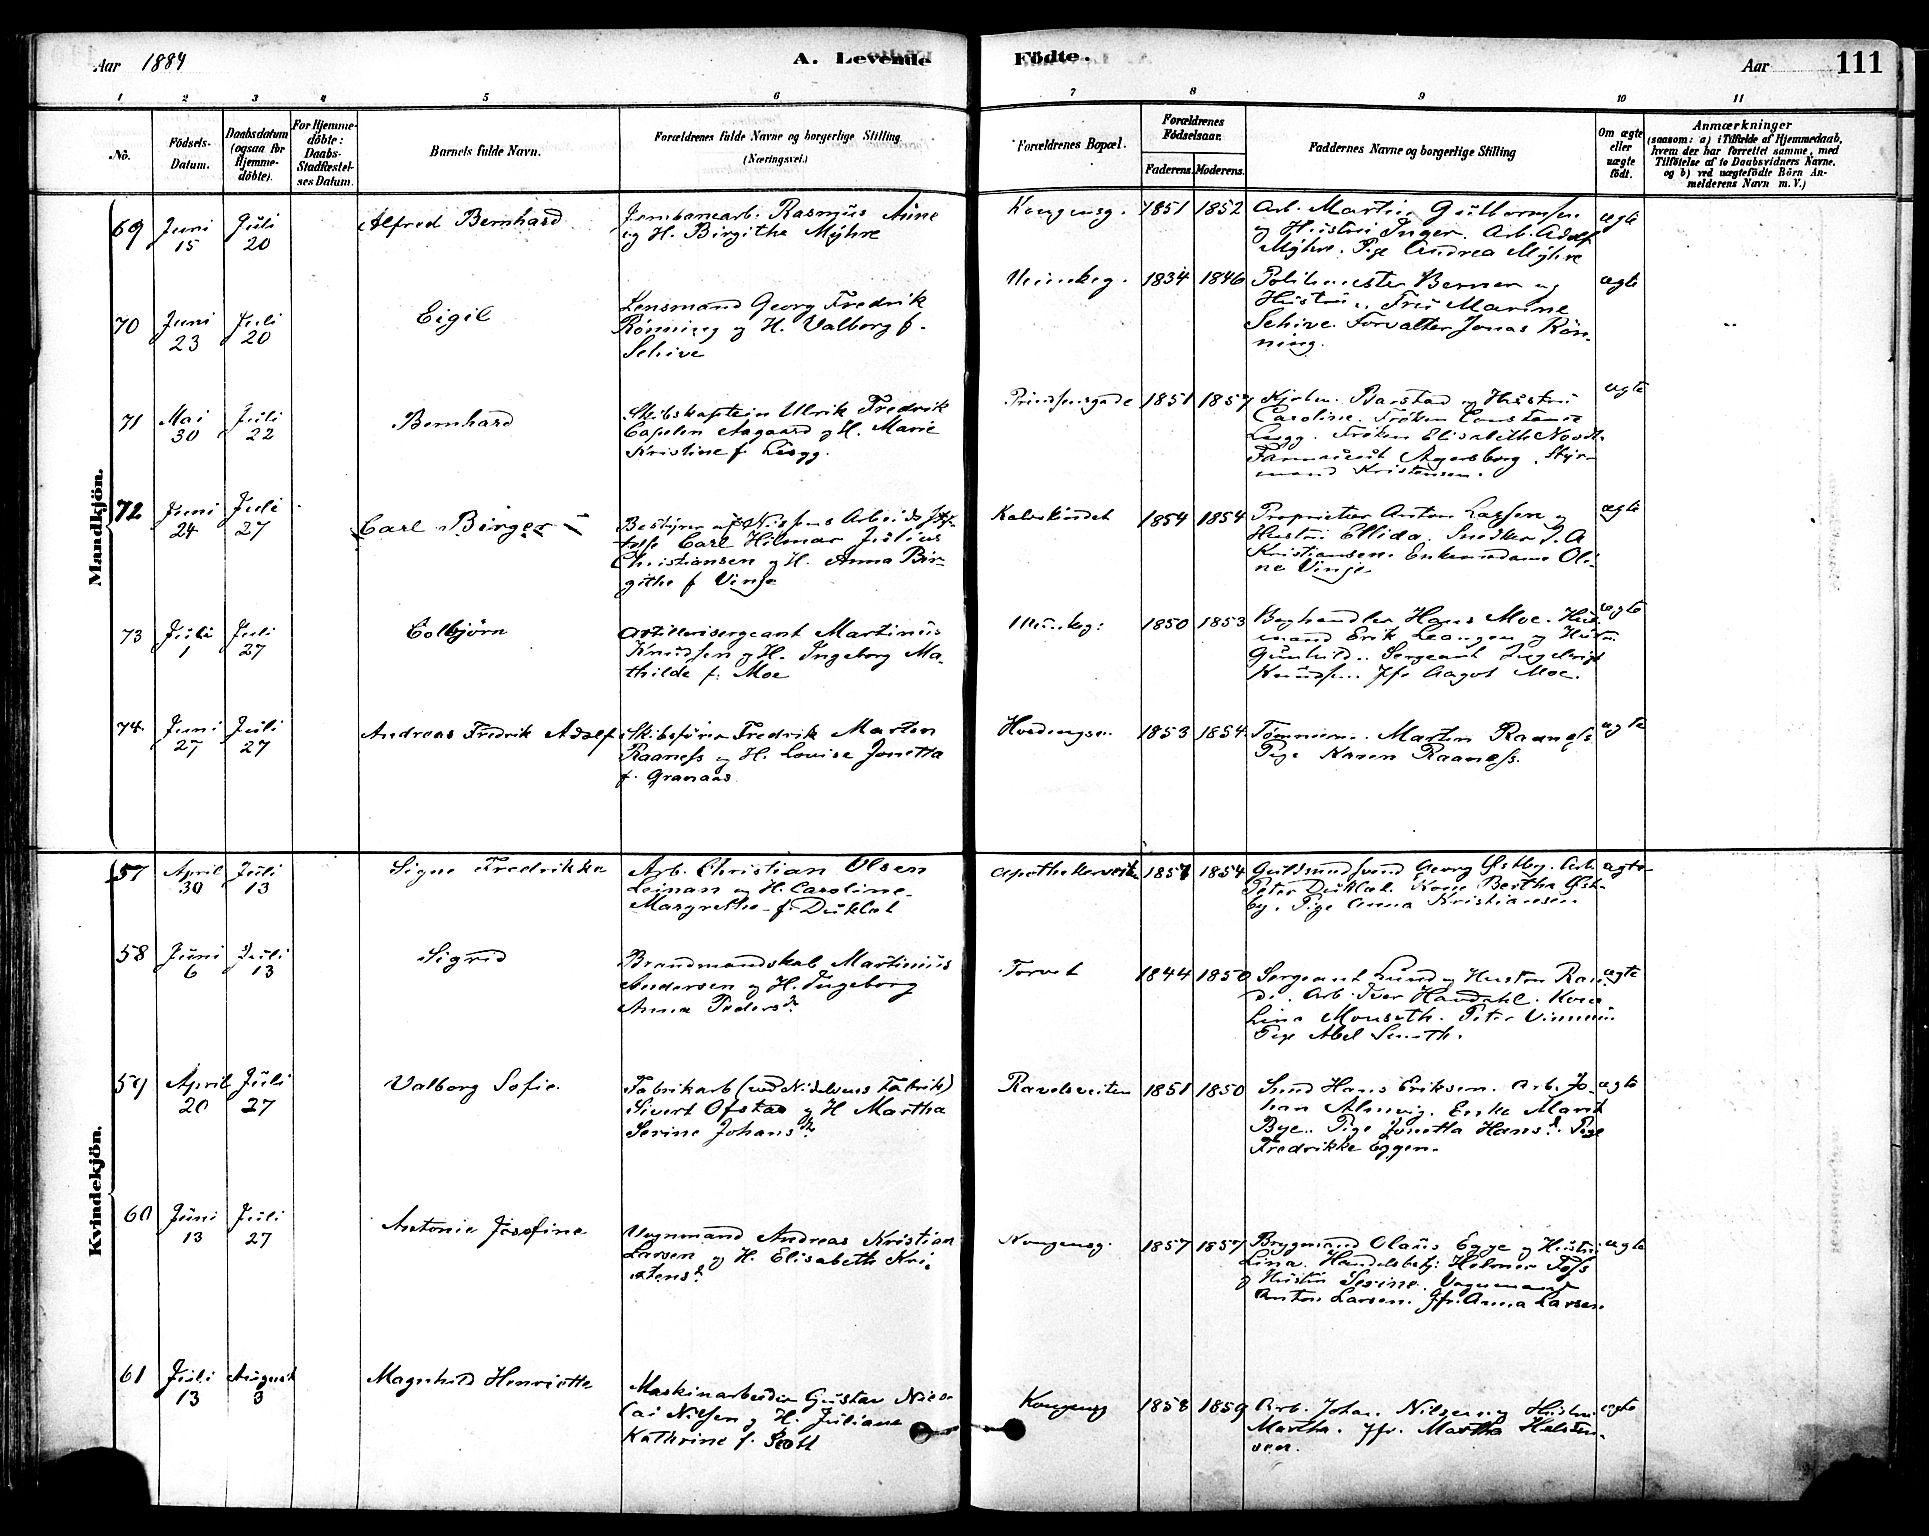 Aar 1884
A. Levende
Födte.
Aar
111
1
2
3
4
5
6
7
8
9
10
11
No.
Födsels-
Datum.
Daabsdatum
(ogsaa for
Hjemme-
döbte).
For Hjemme-
döbte:
Daabs-
Stadfæstel-
ses Datum.
Barnets fulde Navn.
Forældrenes fulde Navne og borgerlige Stilling
(Næringsvei.)
Forældrenes Bopæl.
Forældrenes
Födselsaar.
Faderens.
Moderens.
Faddernes Navne og borgerlige Stilling
Om ægte
eller
uægte
födt.
Anmærkninger
(saasom: a) i Tilfælde af Hjemmedaab,
hvem der har forrettet samme, med
Tilföielse af to Daabsvidners Navne,
og b) ved uægtefödte Börn An-
melderens Navn m. V.)
Mandkjön.
69
Juni
15
Juli
20
Alfred Bernhard
Jernbanearb. Rasmus Aune
og H. Birgithe Myhre
Kongensg.
1851
1852
Arb. Martin Guttormsen
og Hustru Inger. Arb. Adolf
Myhre. Pige Andrea Myhre
ægte
70
Juni
23
Juli
20
Eigil
Lensmand Georg Fredrik
Rönning og H. Valborg f.
Schive
Munkeg.
1834
1846
Politimester Berner og
Hustru. Fru Marine
Schive. Forvalter Jonas Rön-
ning.
ægte
71
Mai
30
Juli
22
Bernhard
Skibskaptein Ulrik Fredrik
Capelen Aagaard og H. Marie
Kristine f. Lysgg.
Prindsensgade
1851
1857
Kjöbm. Barstad og Hustru
Caroline. Fröken Constance
Fröken Elisabeth
Farmaceut Agersborg. Styr-
mand Kristensen.
ægte
72
Juni
24
Juli
27
Carl Birger
Bestyrer af Nissens Arbeids
Carl Hilmar Julius
Christiansen og H. Anna Bir-
githe f. Vinje
Kalvskindet
1854
1854
Proprietær Anton Lassen og
Hustru Ellida. Snedker J. A
Kristiansen. Enkemadame Oli-
ne Vinje
ægte
73
Juli
1
Juli
27
Colbjörn
Artillerisergeant Martinus
Knudsen og H. Ingeborg Ma-
thilde f. Moe
Munkeg:
1850
1853
Boghandler Hans Moe. Hus-
mand Erik Leangen og Hustru
Gunhild. Sergeant Ingebrigt
Knudsen. Jfr Aagot Moe.
ægte
74
Juni
27
Juli
27
Andreas Fredrik Adolf
Skibsförer Fredrik Morten
Raaness og H. Lovise Jonetta
f. Granaas
1853
1854
Tömmerm. Martin Raaness
Pige Karen Raaness.
ægte
Kvindekjön.
57
April
30
Juli
13
Signe Fredrikke
Arb. Christian Olsen
Leinan og H. Caroline
Margrethe f. Duklæt
Apothekerveiten
1857
1854
Guldsmedsvend Georg Östby. Arb
Peter Duklæt. Kone Bertha Öst-
by. Pige Anna Kristiansen
ægte
58
Juni
6
Juli
13
Sigrid
Brandmandskab Martinius
Andersen og H. Ingeborg
Anna Pedersdr
Torvet
1844
1850
Sergeant Lund og Hustru Ran-
di. Arb. Iver Haudahl. Kone
Lina Monseth. Peter
Pige Abel Smith.
ægte
59
April
20
Juli
27
Valborg Sofie
Fabrikarb (ved Nidelvens Fabrik)
Sivert Ofstad og H Martha
Serine Johansdr
Ravelsveiten
1851
1850
Smed Hans Eriksen. Arb. Jo-
han Almvig. Enke Marit
Bye. Pige Jonetta Hansd. Pige
Fredrikke Eggen.
ægte
60
Juni
13
Juli
27
Antonie Josefine
Vognmand Andreas Kristian
Larsen og H. Elisabeth Kri-
stensd
Kongensg.
1857
1857
Bryggmand Olaus Egge og Hustru
Lina. Handelsbetj: Helmer Foss
og Hustru Serine. Vognmand
Anton Larsen. Jfr. Anna Larsen
ægte
61
Juli
13
August
3
Magnhild Henriette
Maskinarbeider Gustav Nico-
lai Nilsen og H. Juliane
Kathrine f. Scott
Kongensg
1858
1859
Arb. Johan Nilsen og Hustru
Martha. Jfr. Martha Halsten-
sen.
ægte